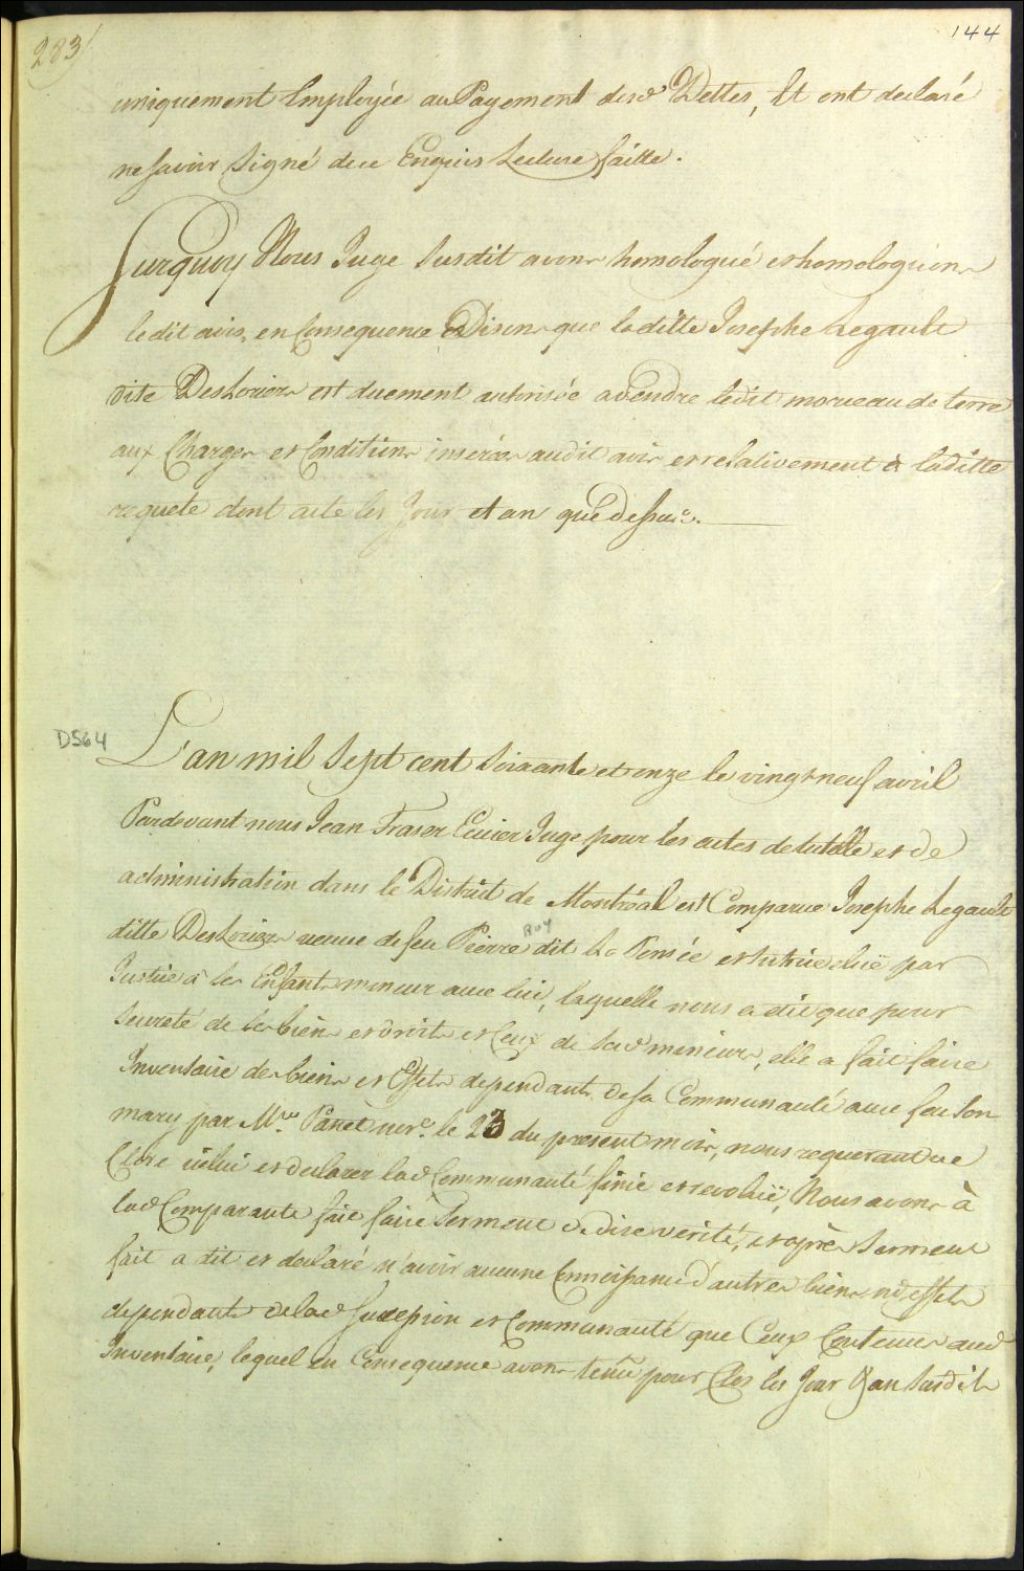 283
144
uniquement Employée au Payement desd. Dettes, Et ont declaré
ne savoir Signé de ce Enquis Lecture faitte.
Surquoy Nous Juge Susdit avons homologué et homologuons
ledit avis, en Consequence Disons que laditte Josephe Legault
dite DesLoriers est duement autorisée a Vendre ledit morceau de terre
aux Charges et Conditions inserées audit avis et relativement à laditte
requete dont acte les Jour et an que Dessus.
D564
L'an mil Sept cent Soixante et onze le vingt neuf avril
Pardevant nous Jean Fraser Ecuier Juge pour les actes de tutelle et de
administration dans le District de Montréal est Comparue Josephe Legault
Roy
ditte DesLoriers veuve de feu Pierre dit La Pensée et tutrice eluë par
Justice à ses Enfants mineur avec lui, laquelle nous a dit que pour
Sureté de ses biens et droits et Ceux de sesd. mineurs, elle a fait faire
Inventaire des biens et Effets dependants de sa Communauté avec feu Son
mary par Mre. Panet nore. le 23 du present mois, nous requerant de
Clore icelui et declarer lad. Communauté finie et revoluë, Nous avons à
lad. Comparante fait faire Serment de dire verité, et après Serment
fait a dit et declaré n'avoir aucune Connoissance d'autres biens ni effets
dependants de lad. Succession et Communauté que Ceux Contenus aud.
Inventaire, lequel en Consequence avons tenu pour Clos les Jour & an Susdits